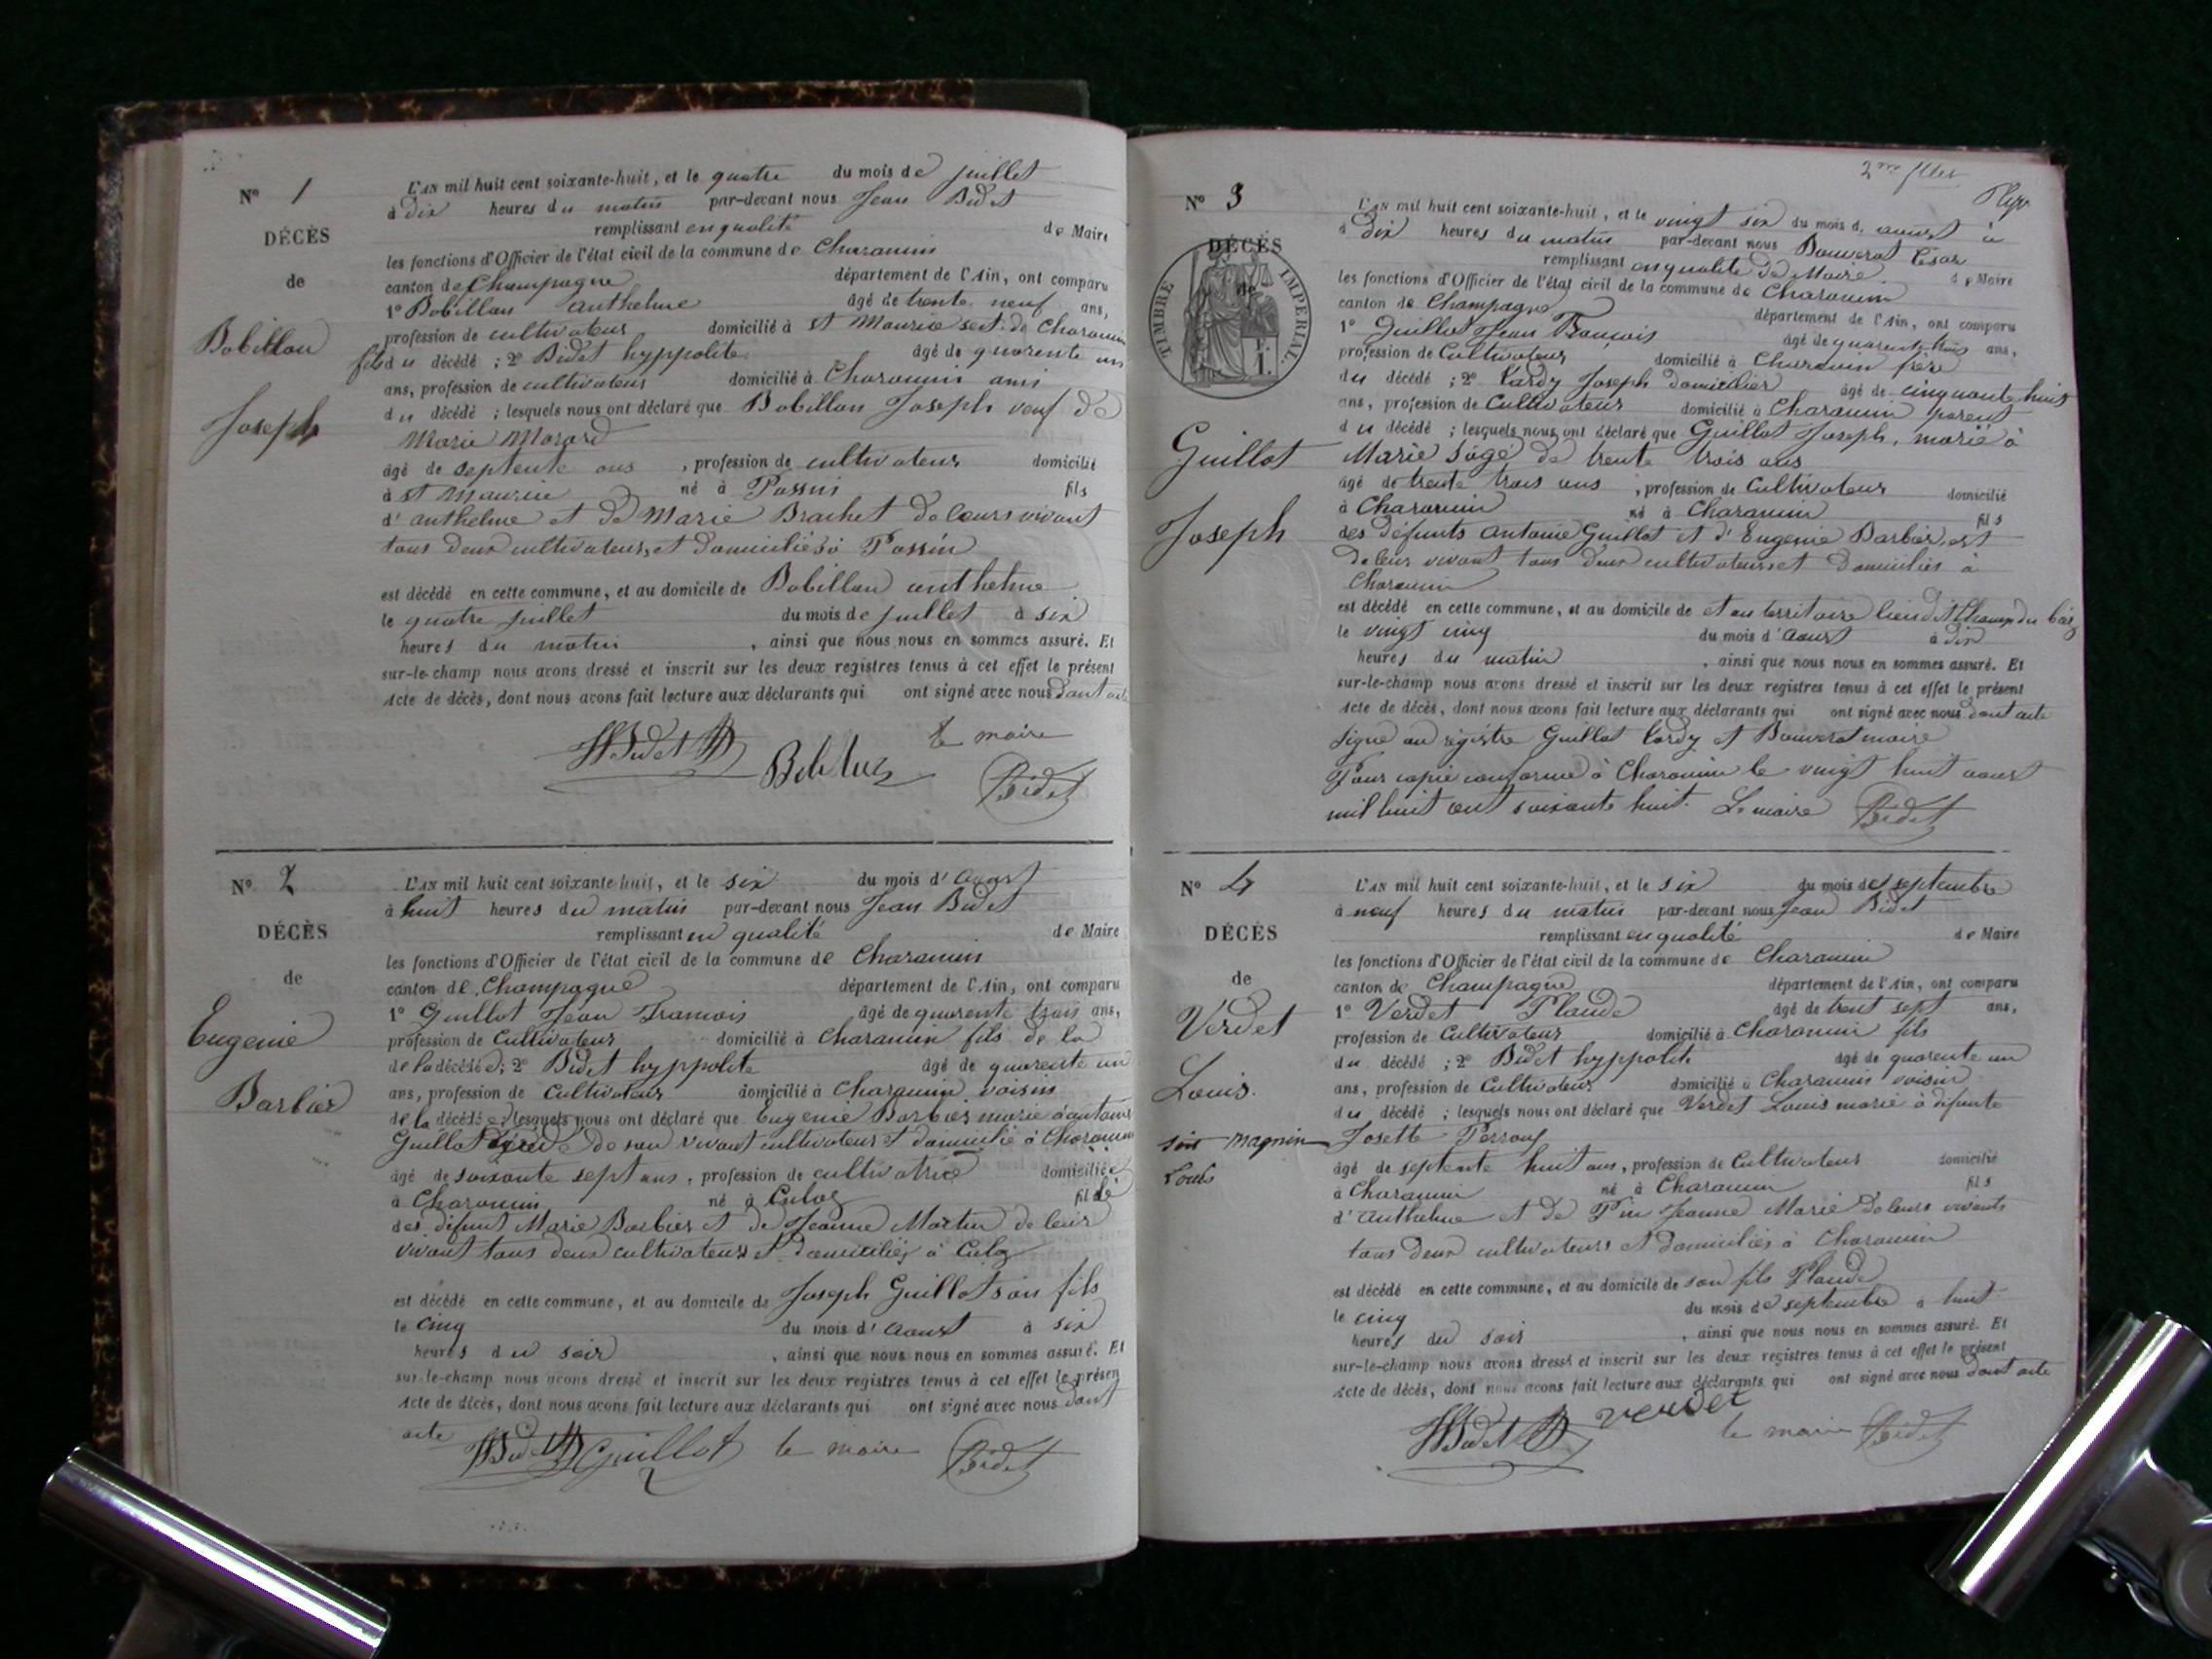 N° 1
DÉCÈS
de
Bobillon
Joseph
L'AN mil huit cent soixante-huit, et le quatre du mois de juillet
à dix heures du matin par-devant nous Jean Bidet
remplissant en qualité de Maire
les fonctions d'Officier de l'état civil de la commune de Charancin
canton de Champagne département de l'Ain, ont comparu
1° Bobillon Anthelme âgé de trente neuf ans,
profession de cultivateur domicilié à St Maurice sect. de Charancin
fils du décédé ; 2° Bidet hyppolite âgé de quarente un
ans, profession de cultivateur domicilié à Charancin ami
du décédé ; lesquels nous ont déclaré que Bobillon Joseph veuf de
Marie Morard
âgé de septente ans , profession de cultivateur domicilié
à St Maurice né à Passin fils
d'anthelme et de Marie Brachet de leurs vivant
tous deux cultivateurs et domiciliés à Passin
est décédé en cette commune, et au domicile de Bobillon anthelme
le quatre juillet du mois de juillet à six
heures du matin , ainsi que nous nous en sommes assuré. Et
sur-le-champ nous avons dressé et inscrit sur les deux registres tenus à cet effet le présent
acte de décès, dont nous avons fait lecture aux déclarants qui ont signé avec nous dont acte
HBidet Le maire
Bidet
N° 2
DÉCÈS
de
Eugenie
Barbier
L'AN mil huit cent soixante-huit, et le six du mois d'Aoust
à huit heures du matin par-devant nous Jean Bidet
remplissant en qualité de Maire
les fonctions d'Officier de l'état civil de la commune de Charancin
canton de Champagne département de l'Ain, ont comparu
1° Guillot Jean Francois âgé de quarente trois ans,
profession de Cultivateur domicilié à Charancin fils de la
de la décédé ; 2° Bidet hyppolite âgé de quarente un
ans, profession de Cultivateur domicilié à Charancin voisin
de la décédée ; lesquels nous ont déclaré que Eugenie Barbier marié à antoine
Guillot de son vivant cultivateur et domicilié à Charancin
âgé de soixante sept ans , profession de cultivatrice domiciliée
à Charancin né à Culoz fille
des défunt Marie Barbier et de Jeanne Martin de leur
vivant tous deux cultivateurs et domiciliés à Culoz
est décédé en cette commune, et au domicile de Joseph Guillot son fils
le cinq du mois d'Aoust à six
heures du soir , ainsi que nous nous en sommes assuré. Et
sur-le-champ nous avons dressé et inscrit sur les deux registres tenus à cet effet le présent
acte de décès, dont nous avons fait lecture aux déclarants qui ont signé avec nous dont
acte HBidet Guillot le maire Bidet
2me
N° 3
DÉCÈS
de
TIMBRE IMPÉRIAL.
Guillot
Joseph
L'AN mil huit cent soixante-huit, et le vingt six du mois d. aoust à
à dix heures du matin par-devant nous Bouverat César
remplissant en qualité de Maire de Maire
les fonctions d'Officier de l'état civil de la commune de Charancin
canton de Champagne département de l'Ain, ont comparu
1° Guillot Jean Francois âgé de quarente trois ans,
profession de Cultivateur domicilié à Charancin frère
du décédé ; 2° Lardy Joseph domicilier âgé de cinquante huit
ans, profession de Cultivateur domicilié à Charancin parent
du décédé ; lesquels nous ont déclaré que Guillot Joseph, marié à
Marie Sage de trente trois ans
âgé de trente trois ans , profession de Cultivateur domicilié
à Charancin né à Charancin fils
des défunts Antoine Guillot et d'Eugenie Barbier, est
de leur vivant tous deux cultivateurs et domiciliés à
Charancin
est décédé en cette commune, et au domicile de et au territoire lieu dit Champ du
le vingt cinq du mois d'Aoust à dix
heures du matin , ainsi que nous nous en sommes assuré. Et
sur-le-champ nous avons dressé et inscrit sur les deux registres tenus à cet effet le présent
acte de décès, dont nous avons fait lecture aux déclarants qui ont signé avec nous dont acte
signé au régistre Guillot Lardy et Bouverat maire
Pour copie conforme à Charancin le vingt huit aoust
mil huit cent soixante huit. Le maire Bidet
N° 4
DÉCÈS
de
Verdet
Louis.
soit Magnin
Louis
L'AN mil huit cent soixante-huit, et le six du mois de septembre
à neuf heures du matin par-devant nous Jean Bidet
remplissant en qualité de Maire
les fonctions d'Officier de l'état civil de la commune de Charancin
canton de Champagne département de l'Ain, ont comparu
1° Verdet Plaude âgé de trent sept ans,
profession de Cultivateur domicilié à Charancin fils
du décédé ; 2° Bidet hyppolite âgé de quarente un
ans, profession de Cultivateur domicilié à Charancin voisin
du décédé ; lesquels nous ont déclaré que Verdet Louis marié à défunte
Josette
âgé de septente huit ans, profession de Cultivateur domicilié
à Charancin né à Charancin fils
d'Anthelme et de Pin Jeanne Marie de leurs vivants
tous deux cultivateurs et domiciliés à Charancin
est décédé en cette commune, et au domicile de son fils Plaude
le cinq du mois de septembre à huit
heures du soir , ainsi que nous nous en sommes assuré. Et
sur-le-champ nous avons dressé et inscrit sur les deux registres tenus à cet effet le présent
acte de décès, dont nous avons fait lecture aux déclarants qui ont signé avec nous dont acte
HBidet verdet le maire Bidet